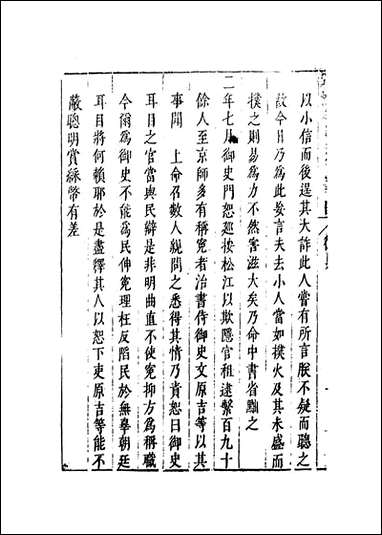 以小信而後逞其大詐此人嘗有所言朕不疑而聽之
故今日乃為此妄言夫去小人當如撲火及其未盛而
撲之則易為力不然害滋大矣乃命中書省黜之
二年七月御史門恕廵按松江以欺隱官租逮繫百九十
餘人至京師多有稱寃者治書侍御史文原吉等以其
事聞　上命召數人親問之悉得其情乃責恕曰御史
耳目之官當與民辯是非明曲直不使寃抑方為稱職
今爾為御史不能為民伸寃理枉反陷民於無辜朝廷
耳目將何賴耶於是盡釋其人以恕下吏原吉等能不
蔽聰明賞綵幣有差